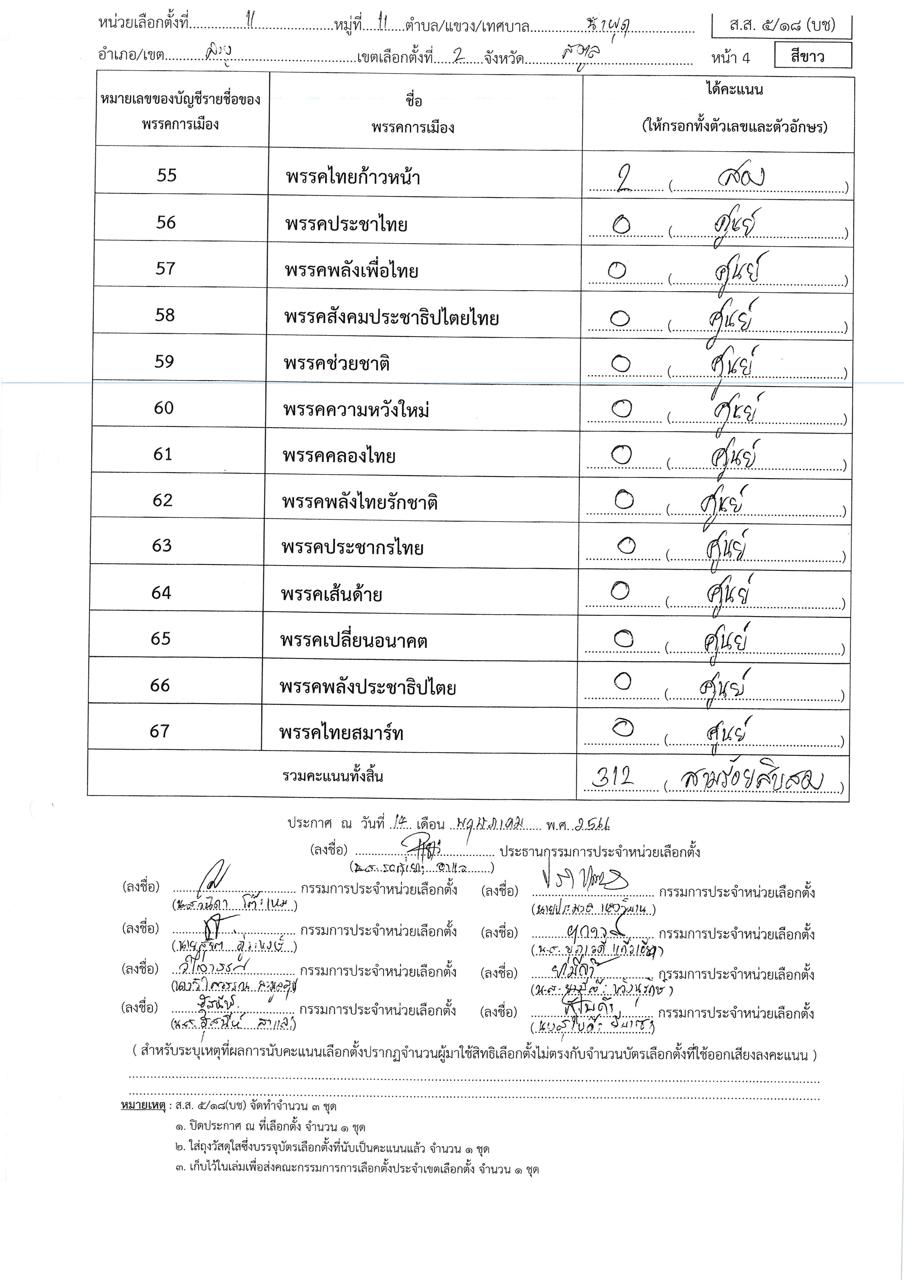 หน่วยเลือกตั้งที่ 11 หมู่ที่ 11 ตำบล/แขวง/เทศบาล น้ำผุด ส.ส. ๕/๑๘ (บช)
อำเภอ/เขต ละงู เขตเลือกตั้งที่ 2 จังหวัด สตูล หน้า 4 สีขาว
หมายเลขของบัญชีรายชื่อของพรรคการเมือง ชื่อพรรคการเมือง ได้คะแนน (ให้กรอกทั้งตัวเลขและตัวอักษร)
55 พรรคไทยก้าวหน้า 2 (สอง)
56 พรรคประชาไทย 0 (ศูนย์)
57 พรรคพลังเพื่อไทย 0 (ศูนย์)
58 พรรคสังคมประชาธิปไตยไทย 0 (ศูนย์)
59 พรรคช่วยชาติ 0 (ศูนย์)
60 พรรคความหวังใหม่ 0 (ศูนย์)
61 พรรคคลองไทย 0 (ศูนย์)
62 พรรคพลังไทยรักชาติ 0 (ศูนย์)
63 พรรคประชากรไทย 0 (ศูนย์)
64 พรรคเส้นด้าย 0 (ศูนย์)
65 พรรคเปลี่ยนอนาคต 0 (ศูนย์)
66 พรรคพลังประชาธิปไตย 0 (ศูนย์)
67 พรรคไทยสมาร์ท 0 (ศูนย์)
รวมคะแนนทั้งสิ้น 312 (สามร้อยสิบสอง)
ประกาศ ณ วันที่ 14 เดือน พฤษภาคม พ.ศ. 2566
(ลงชื่อ) ประธานกรรมการประจำหน่วยเลือกตั้ง
(ลงชื่อ) กรรมการประจำหน่วยเลือกตั้ง (ลงชื่อ) กรรมการประจำหน่วยเลือกตั้ง
(ลงชื่อ) กรรมการประจำหน่วยเลือกตั้ง (ลงชื่อ) กรรมการประจำหน่วยเลือกตั้ง
(ลงชื่อ) กรรมการประจำหน่วยเลือกตั้ง (ลงชื่อ) กรรมการประจำหน่วยเลือกตั้ง
(ลงชื่อ) กรรมการประจำหน่วยเลือกตั้ง (ลงชื่อ) กรรมการประจำหน่วยเลือกตั้ง
( สำหรับระบุเหตุที่ผลการนับคะแนนเลือกตั้งปรากฏจำนวนผู้มาใช้สิทธิเลือกตั้งไม่ตรงกับจำนวนบัตรเลือกตั้งที่ใช้ออกเสียงลงคะแนน )
หมายเหตุ : ส.ส. ๕/๑๘(บช) จัดทำจำนวน ๓ ชุด
๑. ปิดประกาศ ณ ที่เลือกตั้ง จำนวน ๑ ชุด
๒. ใส่ถุงวัสดุใสซึ่งบรรจุบัตรเลือกตั้งที่นับเป็นคะแนนแล้ว จำนวน ๑ ชุด
๓. เก็บไว้ในเล่มเพื่อส่งคณะกรรมการการเลือกตั้งประจำเขตเลือกตั้ง จำนวน ๑ ชุด